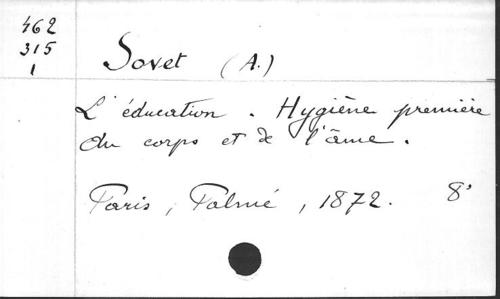 462
315
1
Sovet (A.)
L'éducation. Hygiène première
du corps et de l'âme.
Paris, Palmé, 1872. 8°